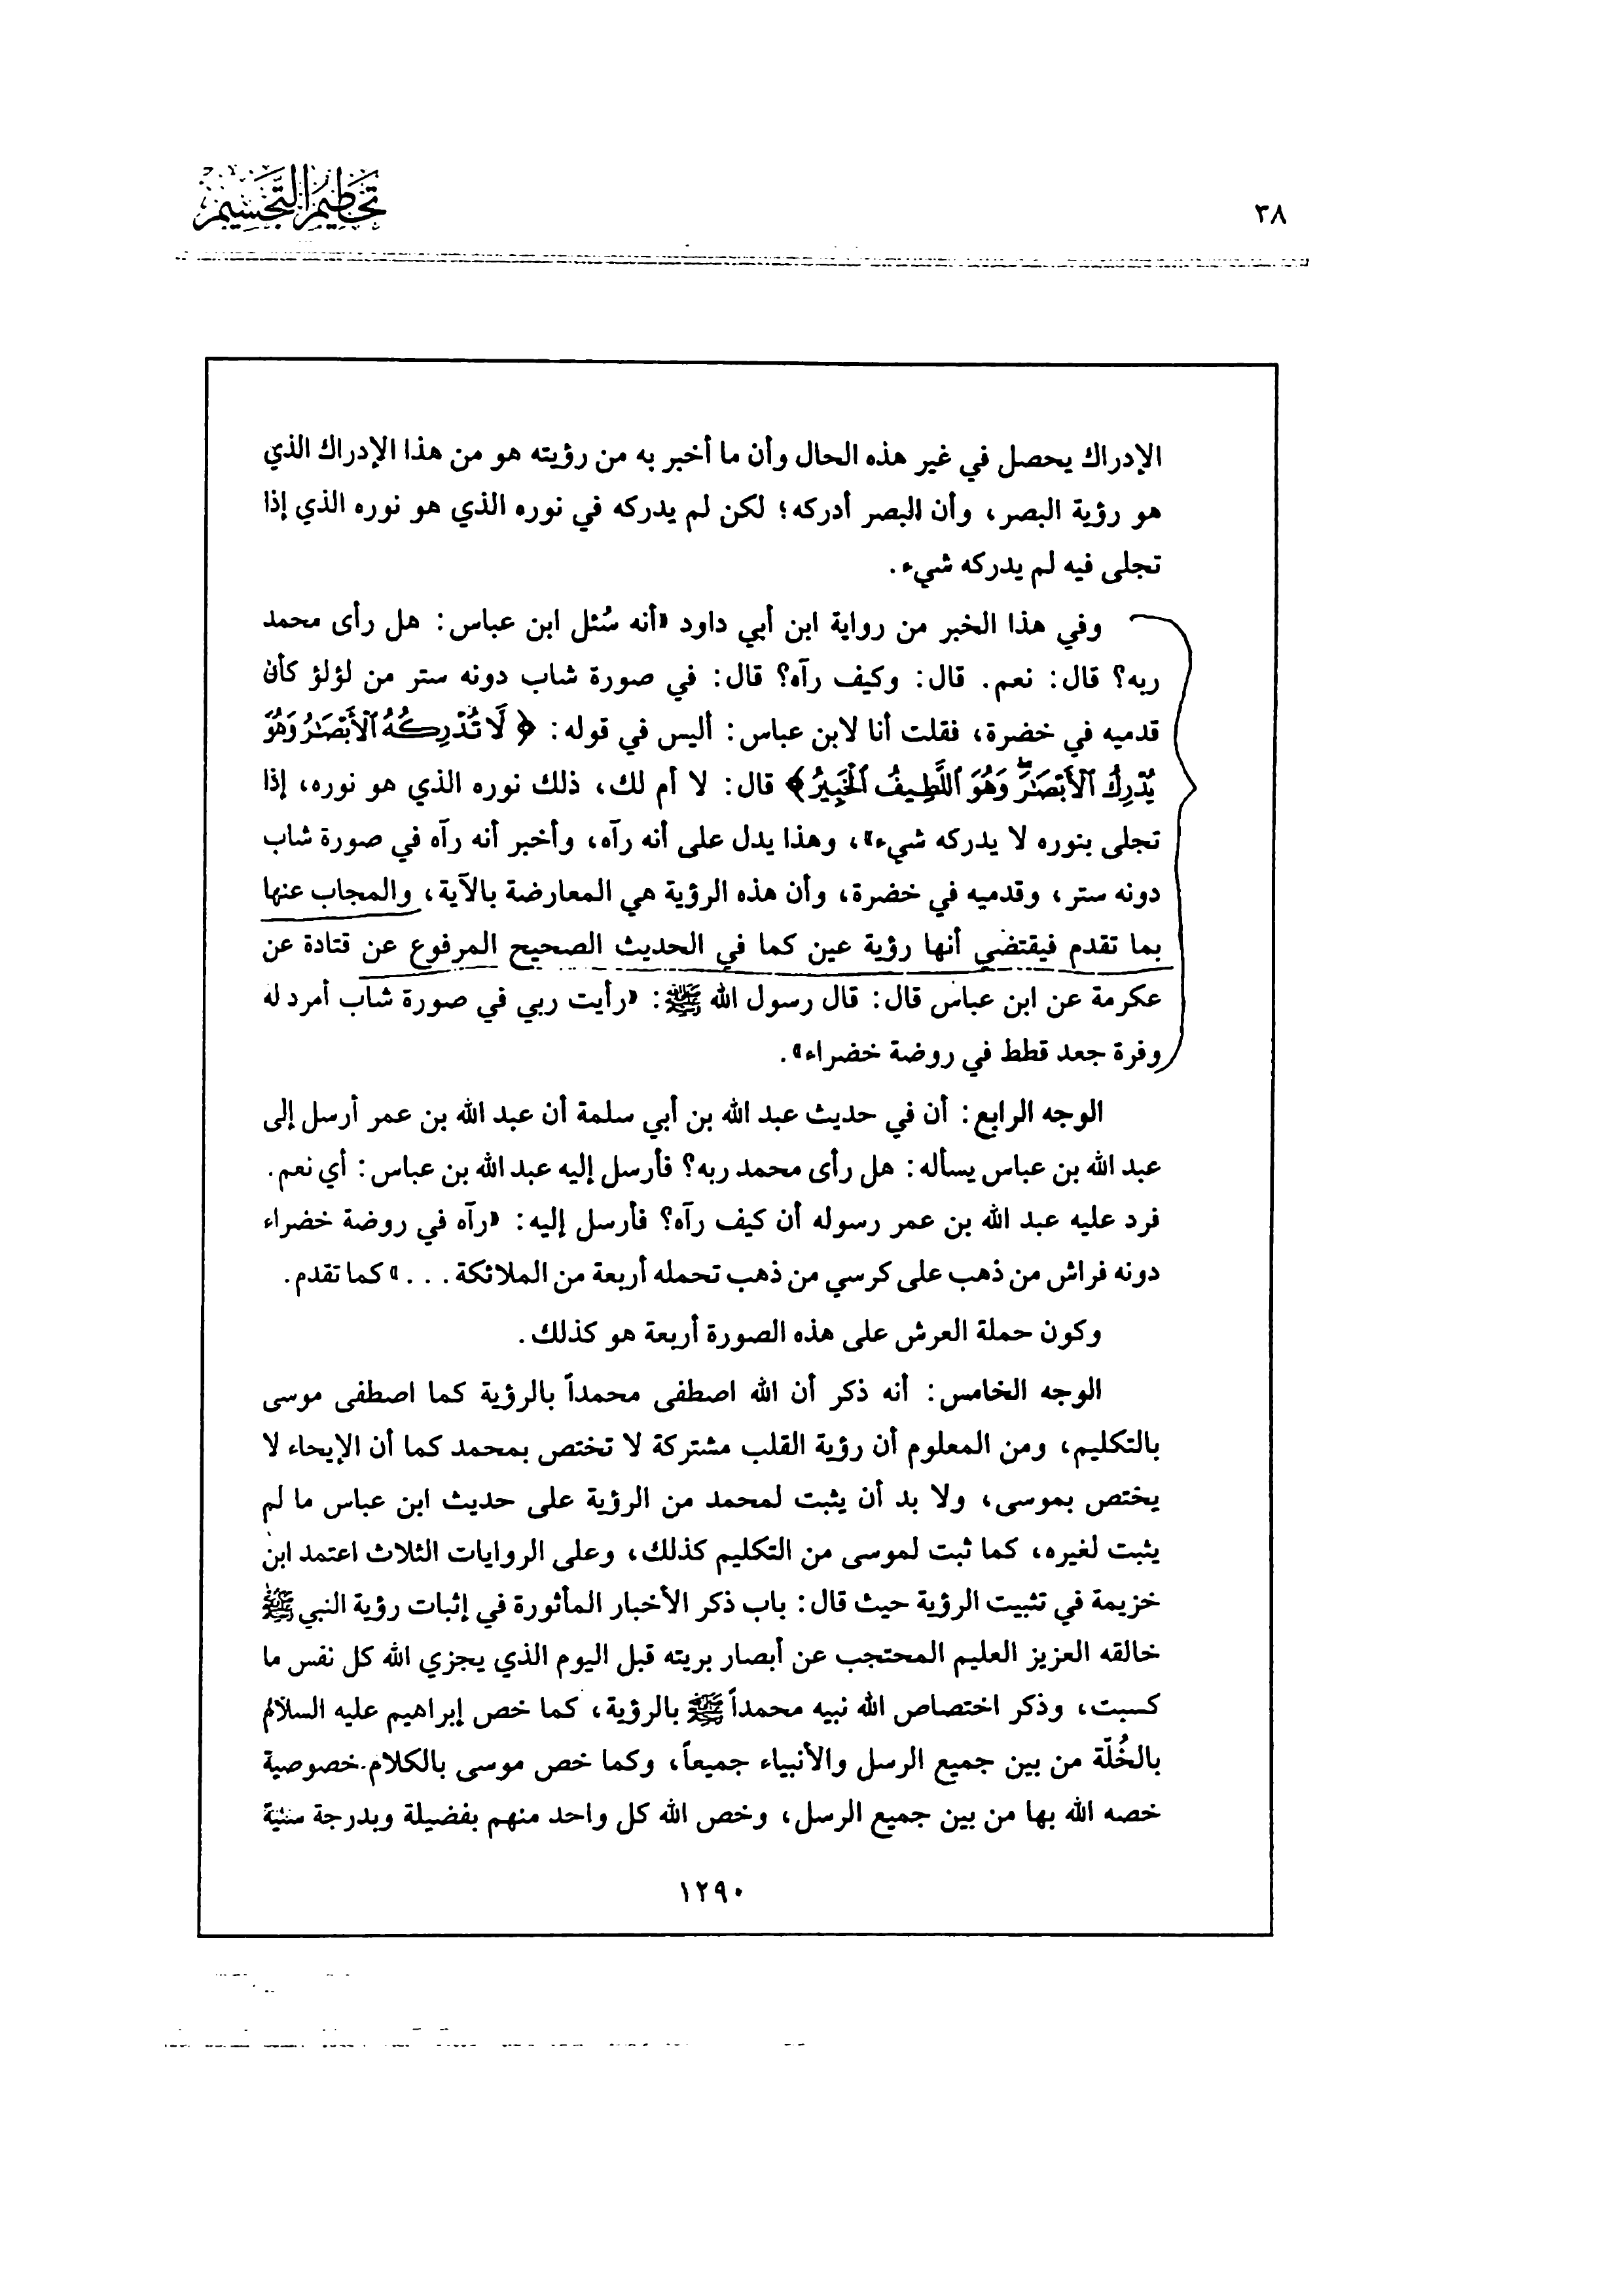 ٣٨
تحطيم التجسيم
الإدراك يحصل في غير هذه الحال وأن ما أخبر به من رؤيته هو من هذا الإدراك الذي
هو رؤية البصر، وأن البصر أدركه؛ لكن لم يدركه في نوره الذي هو نوره الذي إذا
تجلى فيه لم يدركه شيء.
وفي هذا الخبر من رواية ابن أبي داود «أنه سُئل ابن عباس: هل رأى محمد
ربه؟ قال: نعم. قال: وكيف رآه؟ قال: في صورة شاب دونه ستر من لؤلؤ كأن
قدميه في خضرة، فقلت أنا لابن عباس: أليس في قوله: ﴿لَا تُدْرِكُهُ ٱلْأَبْصَـٰرُ وَهُوَ
يُدْرِكُ ٱلْأَبْصَـٰرَ ۖ وَهُوَ ٱللَّطِيفُ ٱلْخَبِيرُ﴾ قال: لا أم لك، ذلك نوره الذي هو نوره، إذا
تجلى بنوره لا يدركه شيء»، وهذا يدل على أنه رآه، وأخبر أنه رآه في صورة شاب
دونه ستر، وقدميه في خضرة، وأن هذه الرؤية هي المعارضة بالآية، والمجاب عنها
بما تقدم فيقتضي أنها رؤية عين كما في الحديث الصحيح المرفوع عن قتادة عن
عكرمة عن ابن عباس قال: قال رسول الله ﷺ: «رأيت ربي في صورة شاب أمرد له
وفرة جعد قطط في روضة خضراء».
الوجه الرابع: أن في حديث عبد الله بن أبي سلمة أن عبد الله بن عمر أرسل إلى
عبد الله بن عباس يسأله: هل رأى محمد ربه؟ فأرسل إليه عبد الله بن عباس: أي نعم.
فرد عليه عبد الله بن عمر رسوله أن كيف رآه؟ فأرسل إليه: «رآه في روضة خضراء
دونه فراش من ذهب على كرسي من ذهب تحمله أربعة من الملائكة . . .» كما تقدم.
وكون حملة العرش على هذه الصورة أربعة هو كذلك.
الوجه الخامس: أنه ذكر أن الله اصطفى محمداً بالرؤية كما اصطفى موسى
بالتكليم، ومن المعلوم أن رؤية القلب مشتركة لا تختص بمحمد كما أن الإيحاء لا
يختص بموسى، ولا بد أن يثبت لمحمد من الرؤية على حديث ابن عباس ما لم
يثبت لغيره، كما ثبت لموسى من التكليم كذلك، وعلى الروايات الثلاث اعتمد ابن
خزيمة في تثبيت الرؤية حيث قال: باب ذكر الأخبار المأثورة في إثبات رؤية النبي ﷺ
خالقه العزيز العليم المحتجب عن أبصار بريته قبل اليوم الذي يجزي الله كل نفس ما
كسبت، وذكر اختصاص الله نبيه محمداً ﷺ بالرؤية، كما خص إبراهيم عليه السلام
بالخُلّة من بين جميع الرسل والأنبياء جميعاً، وكما خص موسى بالكلام خصوصية
خصه الله بها من بين جميع الرسل، وخص الله كل واحد منهم بفضيلة وبدرجة سنية
١٢٩٠